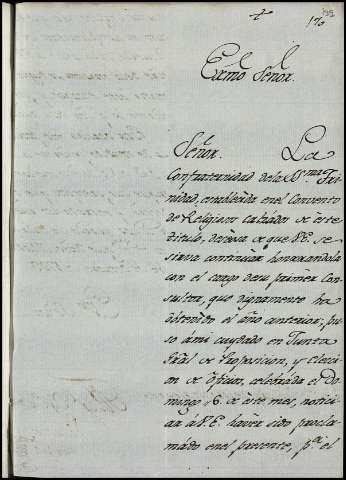 170
Exmo Señor.
Señor. La
Confraternidad de la SS.ma Tri-
nidad, establecida en el Convento
de Religiosos calzados de este
titulo, deseosa de que V.E. se
sirva continuar honrrandola
con el cargo de su primer Con-
sultor, que dignamente ha
obtenido el año anterior; pu-
so á mi cuydado en Junta
gral de Proposicion, y Eleccion
de Oficios, celebráda el Do-
mingo 6. de este mes, notici-
ar á V.E. haver sido procla-
mádo en el presente, p.r el